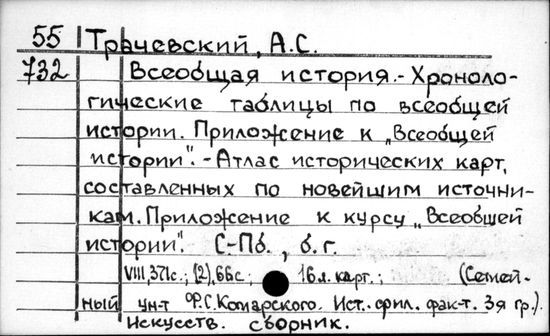 55 Трачевский, А.С.
732 Всеобщая история.- Хроноло-
гические таблицы по всеобщей
истории. Приложение к „Всеобщей
истории". - Атлас исторических карт,
составленных по новейшим источни-
кам. Приложение к курсу „Всеобшей
истории". С-Пб., б.г.
VIII, 371с.; (2), 66с.; 16л. карт.; (Семей-
ный ун-т Ф.С. Комарского. Ист. фил. фак-т. 3я гр.).
Искусств. сборник.